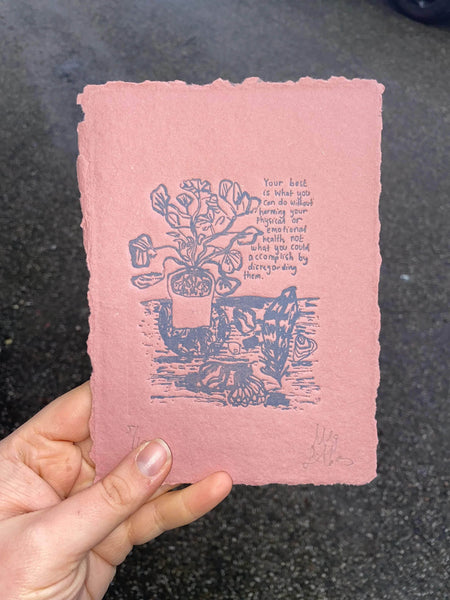 Your best
is what you
can do without
harming your
physical or
emotional
health not
what you could
accomplish by
disregarding
them.